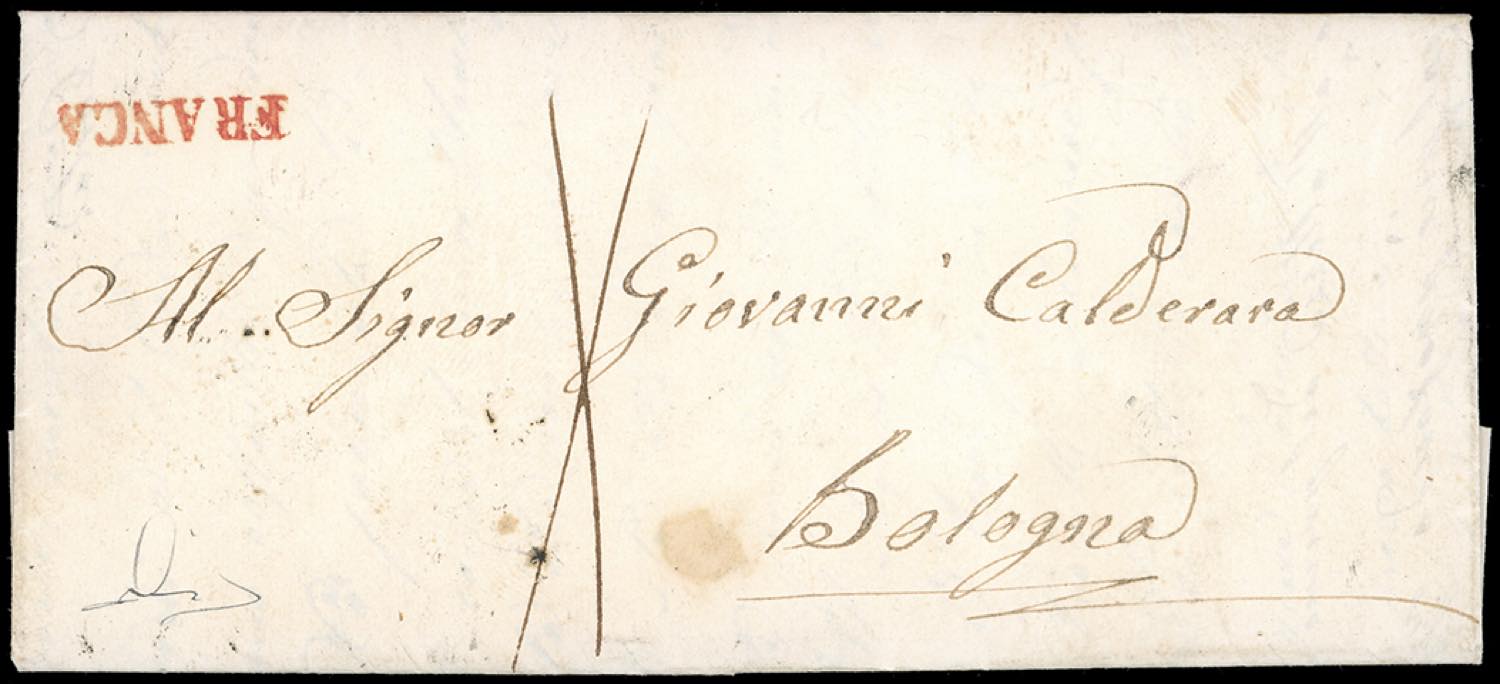 FRANCA
Al Signor Giovanni Calderara
Bologna